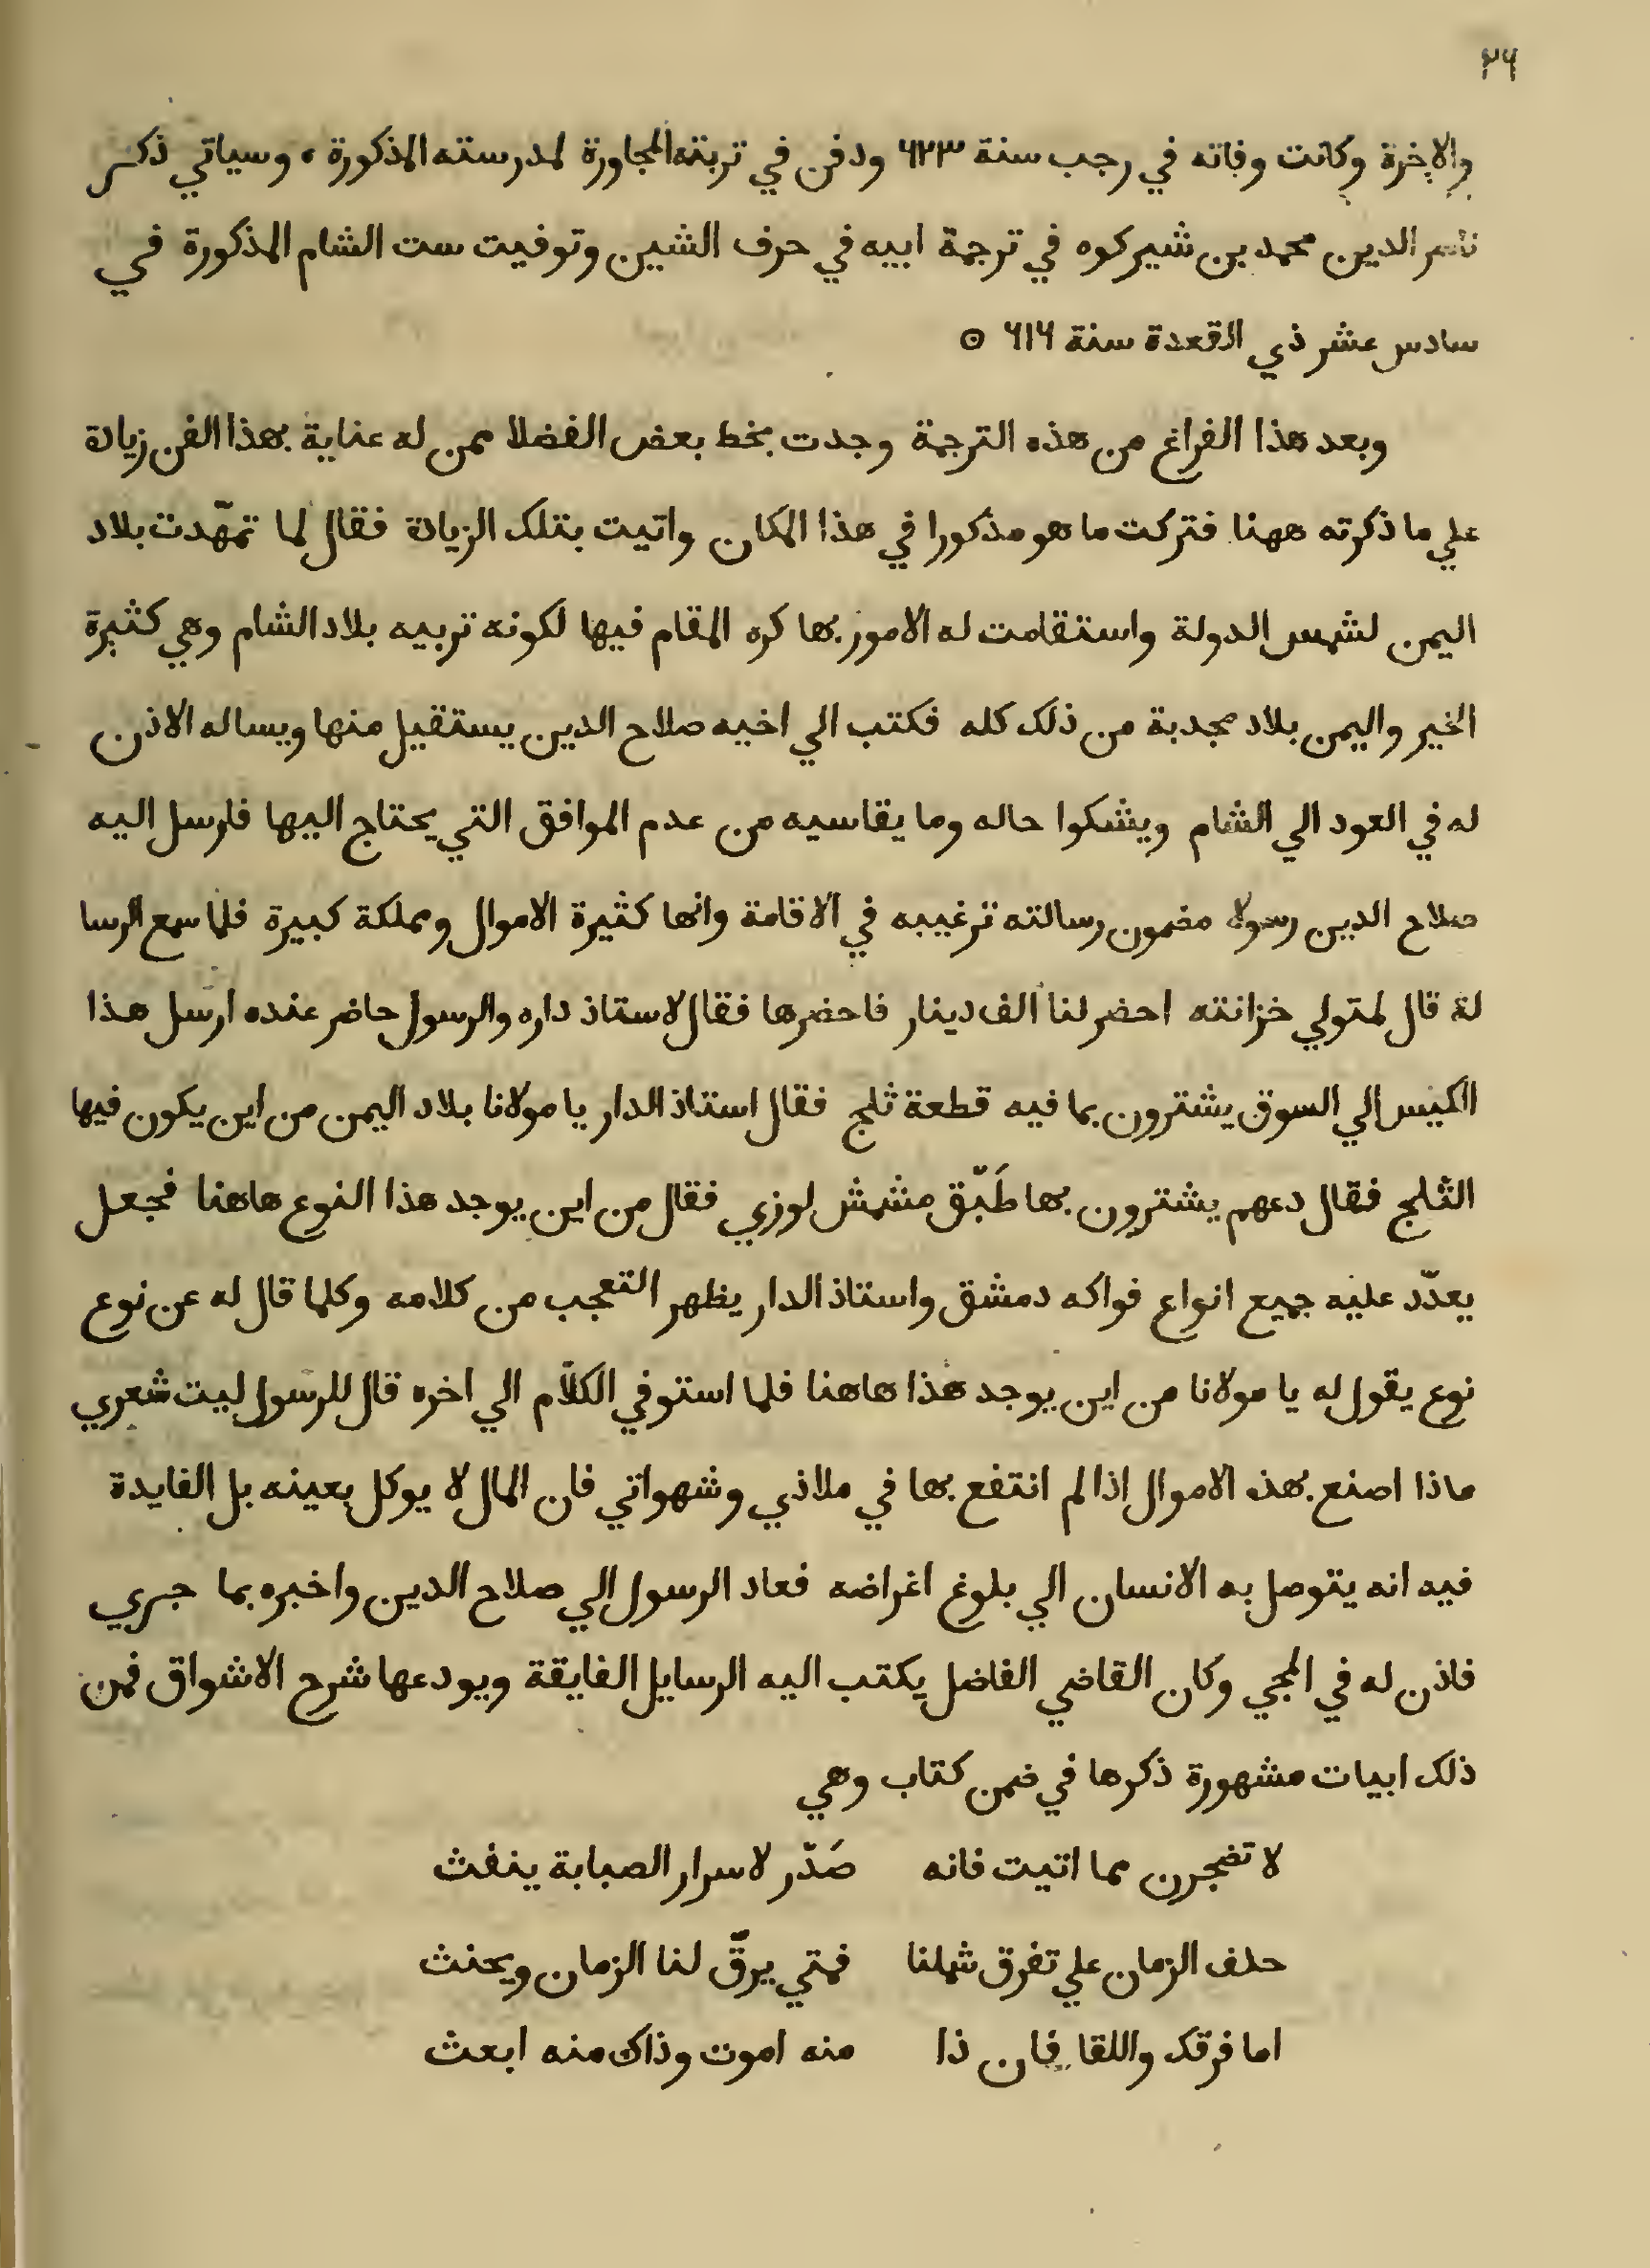 ٢٦
والاخرة وكانت وفاته في رجب سنة ٦٢٣ ودفن في تربته المجاورة لمدرسته المذكورة ، وسياتي ذكر
ناصر الدين محمد بن شيركوه في ترجمة ابيه في حرف الشين وتوفيت ست الشام المذكورة في
سادس عشر ذي القعدة سنة ٦١٦ ⊙
وبعد هذا الفراغ من هذه الترجمة وجدت بخط بعض الفضلا ممن له عناية بهذا الفن زيادة
علي ما ذكرته ههنا فتركت ما هو مذكورا في هذا المكان واتيت بتلك الزيادة فقال لما تمهّدت بلاد
اليمن لشمس الدولة واستقامت له الامور بها كره المقام فيها لكونه تربيه بلاد الشام وهي كثيرة
الخير واليمن بلاد مجدبة من ذلك كله فكتب الي اخيه صلاح الدين يستقيل منها ويساله الاذن
له في العود الي الشام ويشكوا حاله وما يقاسيه من عدم الموافق التي يحتاج اليها فارسل اليه
صلاح الدين رسولا مضمون رسالته ترغيبه في الاقامة وانها كثيرة الاموال ومملكة كبيرة فلما سمع الرسا
لة قال لمتولي خزانته احضر لنا الف دينار فاحضرها فقال لاستاذ داره والرسول حاضر عنده ارسل هذا
الكيس الي السوق يشترون بما فيه قطعة ثلج فقال استاذ الدار يا مولانا بلاد اليمن من اين يكون فيها
الثلج فقال دعهم يشترون بها طَبّق مشمش لوزي فقال من اين يوجد هذا النوع هاهنا فجعل
يعدّد عليه جميع انواع فواكه دمشق واستاذ الدار يظهر التعجب من كلامه وكلما قال له عن نوع
نوع يقول له يا مولانا من اين يوجد هذا هاهنا فلما استوفي الكلام الي اخره قال للرسول ليت شعري
ماذا اصنع بهذه الاموال اذا لم انتفع بها في ملاذي وشهواتي فان المال لا يوكل بعينه بل الفايدة
فيه انه يتوصل به الانسان الي بلوغ اغراضه فعاد الرسول الي صلاح الدين واخبره بما جري
فاذن له في المجي وكان القاضي الفاضل يكتب اليه الرسايل الفايقة ويودعها شرح الاشواق فمن
ذلك ابيات مشهورة ذكرها في ضمن كتاب وهي
لا تضجرن مما اتيت فانه صَدّر لاسرار الصبابة ينفث
حلف الزمان علي تفرق شملنا فمتي يرقّ لنا الزمان ويحنث
اما فرقك واللقا فان ذا منه اموت وذاك منه ابعث